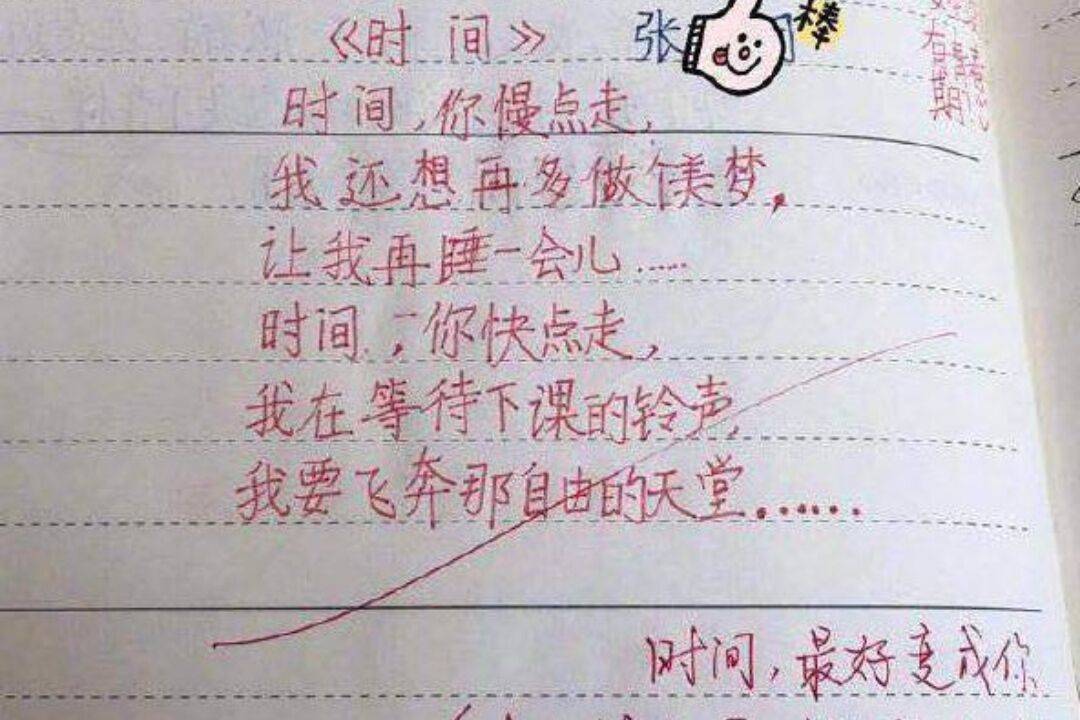 《时间》 张
棒
时间,你慢点走,
我还想再多做个美梦,
让我再睡一会儿……
时间,你快点走,
我在等待下课的铃声,
我要飞奔那自由的天堂……
时间,最好变成你